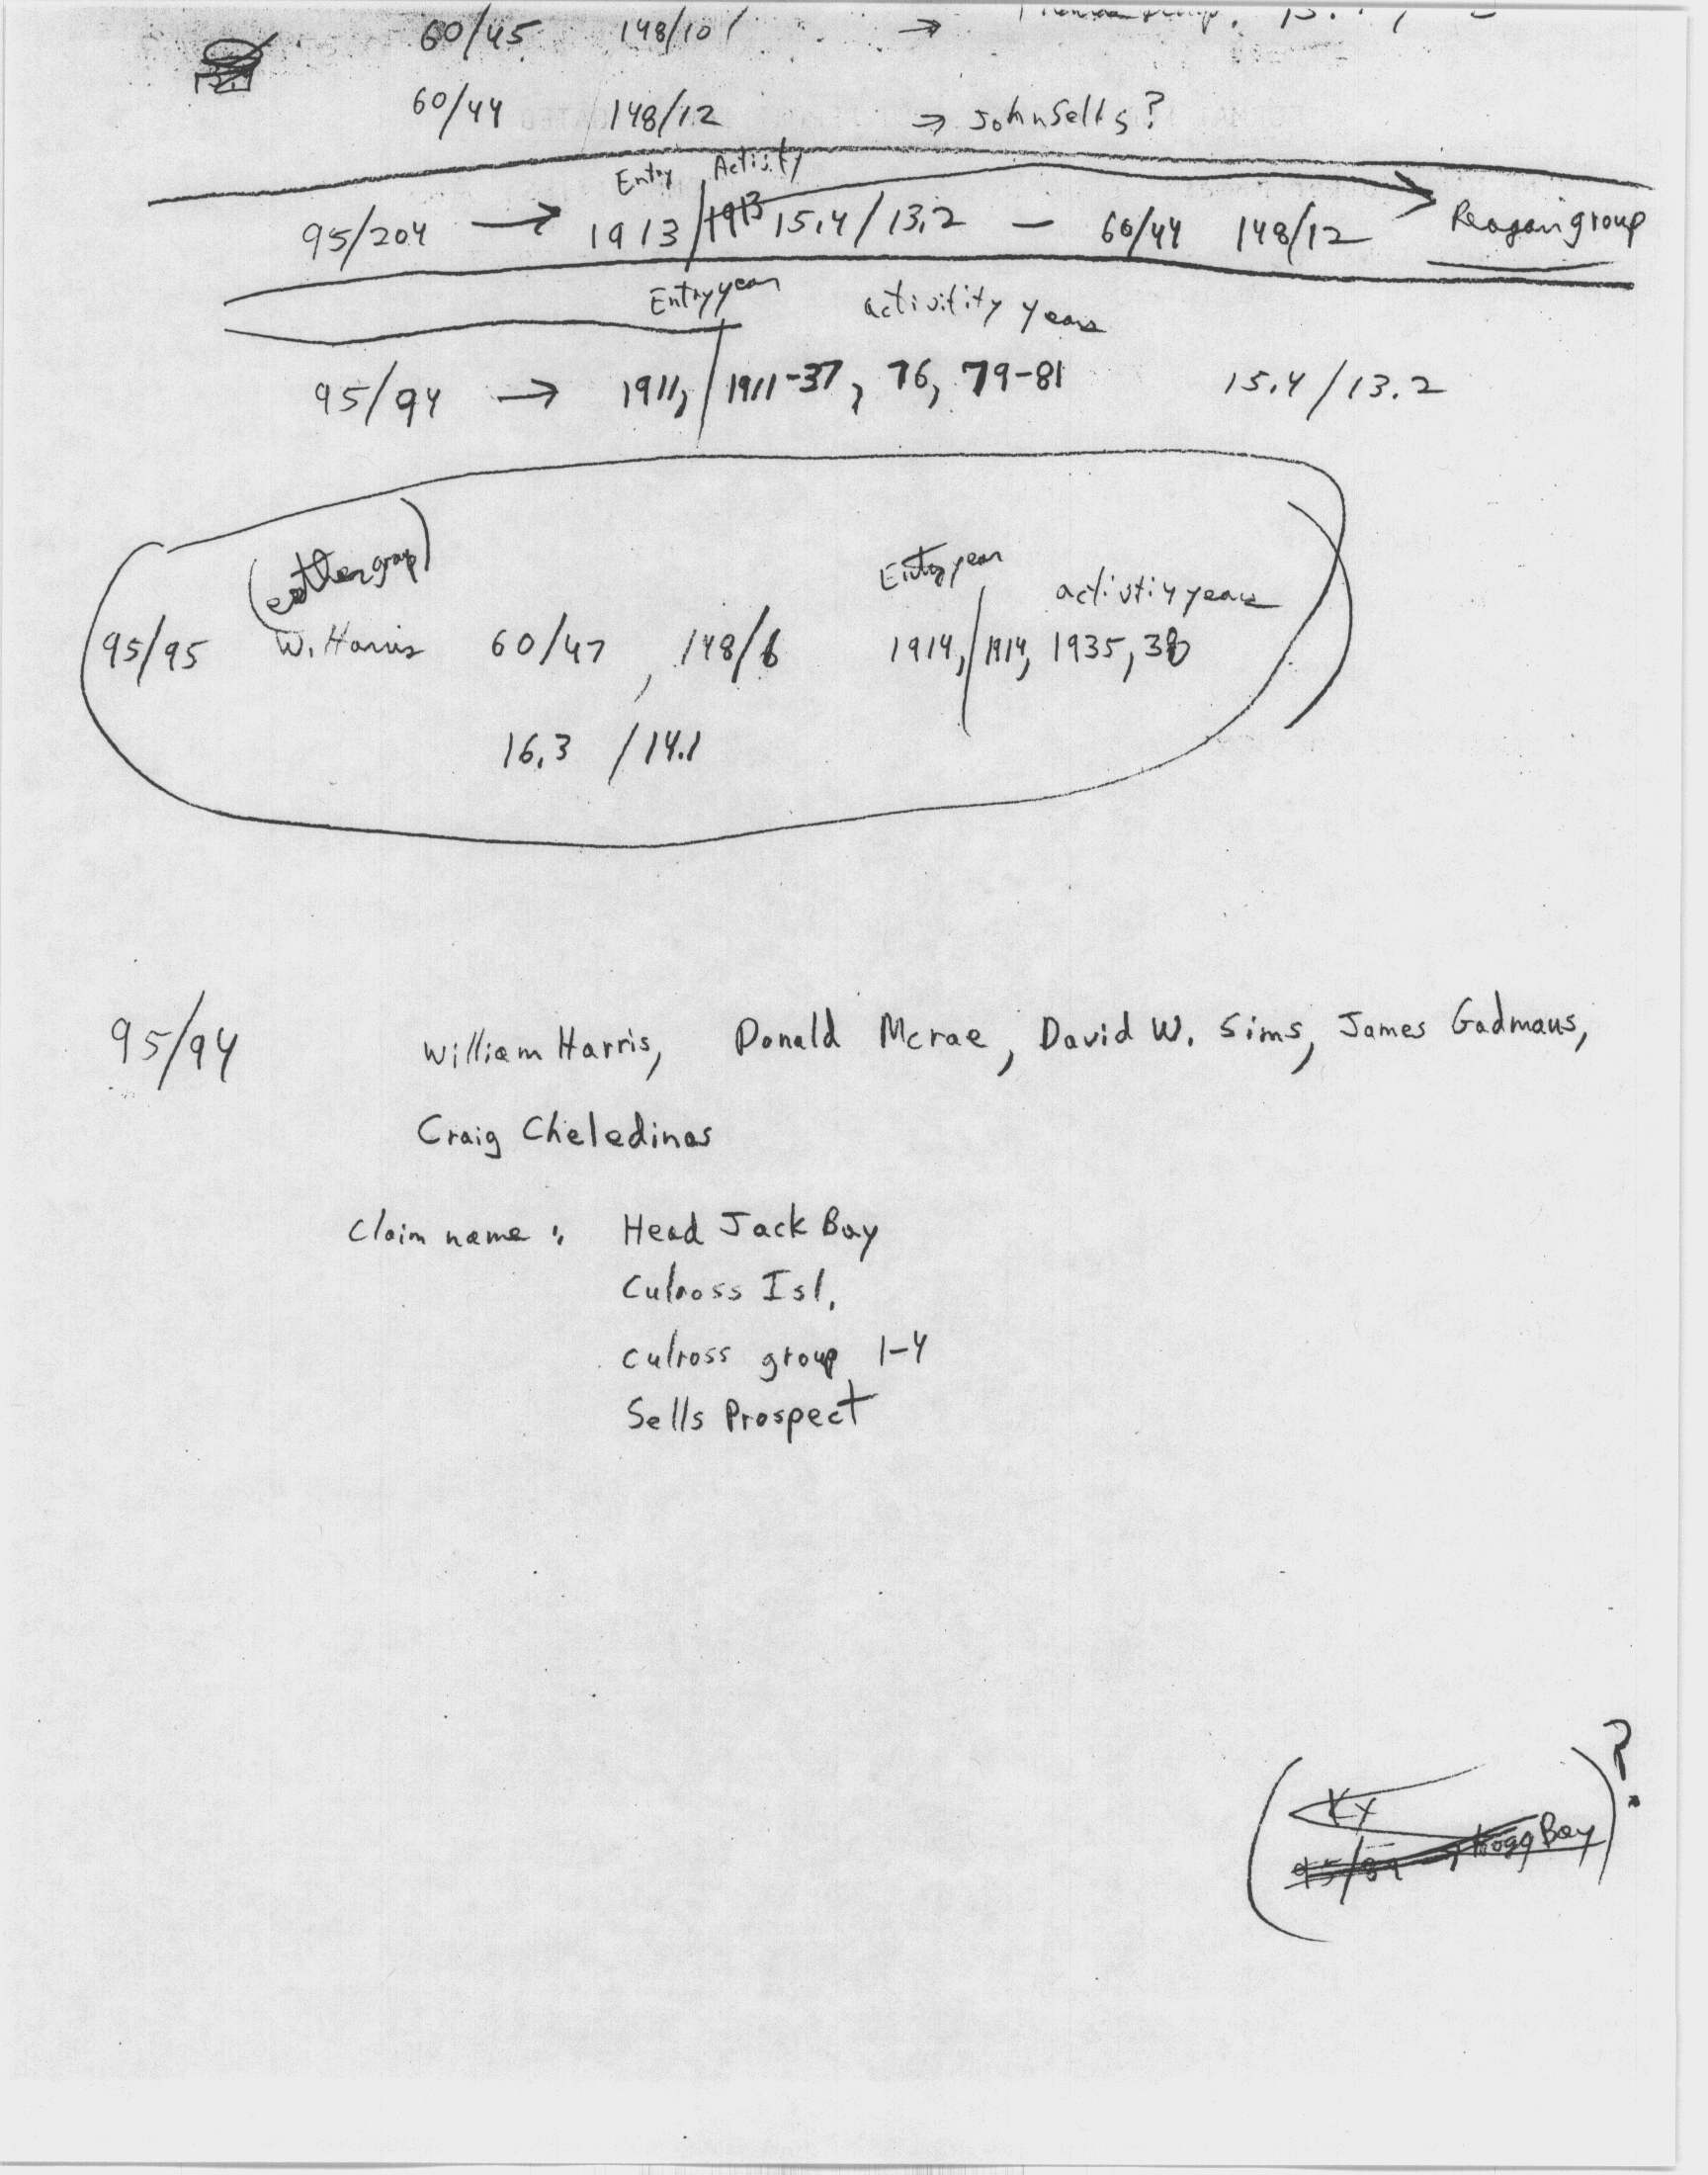 60/45 148/10 →
60/44 148/12 ⇒ John Sells?
Entry Activity
95/204 → 1913/1913 15.4/13.2 – 60/44 148/12 Reagan group
Entry year activitity years
95/94 → 1911,/1911-37, 76, 79-81 15.4/13.2
Entry year activtiy years
95/95 W. Harris 60/47, 148/6 1914,/1914, 1935, 38
16.3 /14.1
95/94 William Harris, Donald Mcrae, David W. Sims, James Gadmaus,
Craig Cheledinas
Claim name: Head Jack Bay
Culross Isl.
culross group 1-4
Sells Prospect
?
KX
Bay